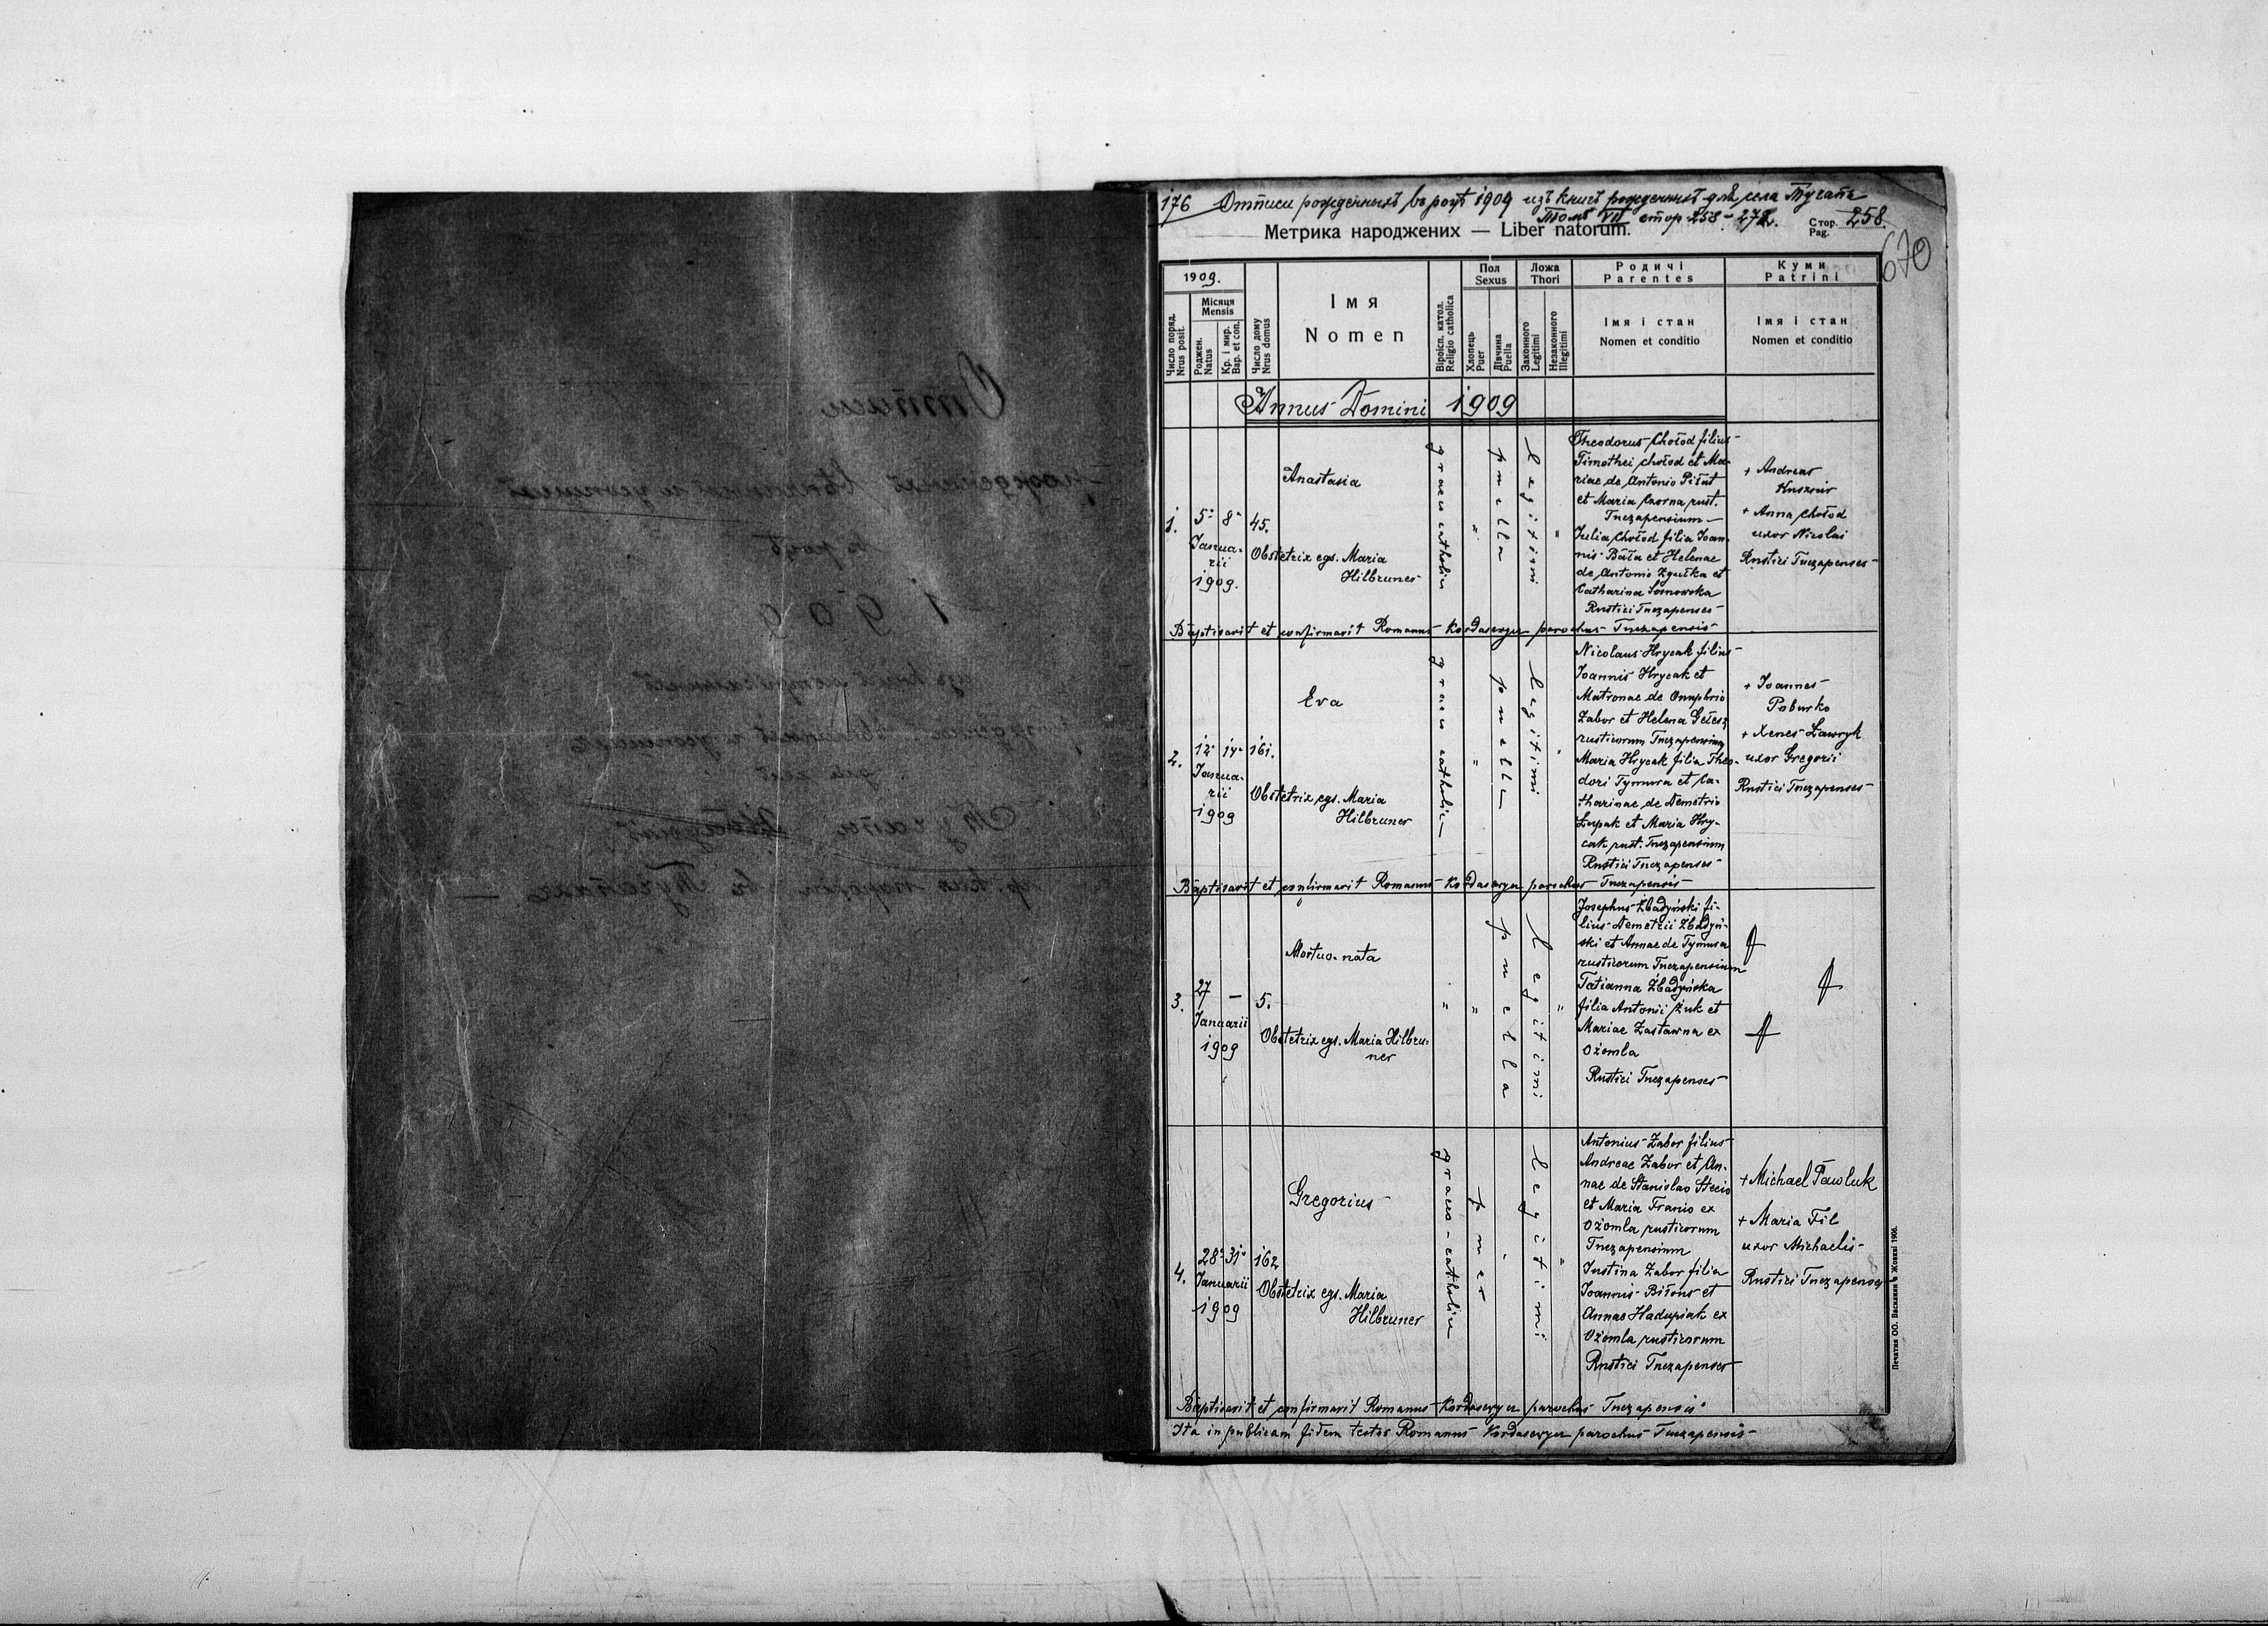 176 Отписи рожденныхъ въ роцѣ 1909 изъ книгъ рожденныхъ для села Тучапъ
Томъ VII стор 258 - 272.
Метрика народжених — Liber natorum.
Стор. 258.
Pag.
670
1909.
Число поряд.
Nrus posit.
Місяця
Mensis
Роджен.
Natus
Кр. і мир.
Bap. et con.
Число дому
Nrus domus
Імя
Nomen
Віроісп. катол.
Religio catholica
Пол
Sexus
Хлопець
Puer
Дївчина
Puella
Ложа
Thori
Законного
Legitimi
Незаконного
Illegitimi
Родичі
Parentes
Імя і стан
Nomen et conditio
Куми
Patrini
Імя і стан
Nomen et conditio
Annus Domini 1909
1.
5. 8.
Janua-
rii
1909.
45.
Anastasia
Obstetrix egs. Maria
Hilbruner
graeco catholica
puella
legitimi
Theodorus Chołod filius
Timothei Chołod et Ma-
riae de Antonio
et Maria Czorna rust.
Tuczapensium
Julia Chołod filia Joan-
nis Bała et Helenae
de Antonio Zgułka et
Catharina Sosnowska
Rustici Tuczapenses
+ Andreas
+ Anna Chołod
uxor Nicolai
Rustici Tuczapenses
Baptisavit et confirmavit Romanus Kordasewycz parochus Tuczapensis
2.
12. 14.
Janua-
rii
1909
161.
Eva
Obstetrix egs. Maria
Hilbruner
graeco catholic
puella
legitimi
Nicolaus Hrycak filius
Joannis Hrycak et
Matronae de Onuphrio
Zabor et Helena
rusticorum Tuczapensium
Maria Hrycak filia Theo-
dori Tymura et Ca-
tharinae de Demetrio
Łupak et Maria Hry-
cak rust. Tuczapensium
Rustici Tuczapenses
+ Joannes
Paburko
+ Xenes Ławryk
uxor Gregorii
Rustici Tuczapenses
Baptisavit et confirmavit Romanus Kordasewycz parochus Tuczapensis
3.
27 —
Januarii
1909
5.
Mortuo-nata
Obstetrix egs. Maria Hilbru-
ner
puella
legitimi
Josephus Żbadyński fi-
lius Demetrii Żbadyń-
ski et Annae de Tymura
rusticorum Tuczapensium
Tatianna Żbadyńska
filia Antonii Żuk et
Mariae Zastawna ex
Ożomla
Rustici Tuczapenses
4.
28. 31.
Januarii
1909
162
Gregorius
Obstetrix egs. Maria
Hilbruner
graeco-catholica
puer
legitimi
Antonius Zabor filius
Andreae Zabor et An-
nae de Stanislao Stecio
et Maria Franio ex
Ożomla rusticorum
Tuczapensium
Justina Zabor filia
Joannis Biłous et
Annae Hadupiak ex
Ożomla rusticorum
Rustici Tuczapenses
+ Michael Pawluk
+ Maria Fil
uxor Michaelis
Rustici Tuczapenses
Baptisavit et confirmavit Romanus Kordasewycz parochus Tuczapensis
Ita in publicam fidem testor Romanus Kordasewycz parochus Tuczapensis
Печатня ОО. Василиян в Жовкві 1906.